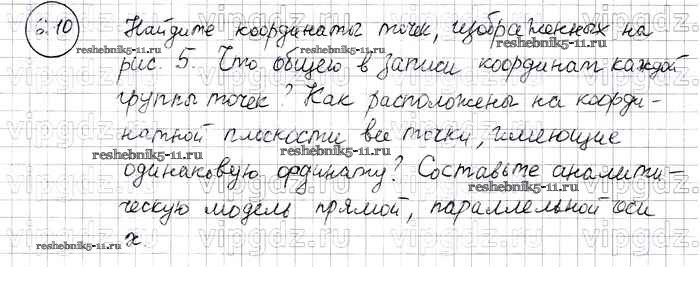 6.10 Найдите координаты точек, изображенных на
reshebnik5-11.ru reshebnik5-11.ru
рис. 5. Что общего в записи координат каждой
группы точек? Как расположены на коорди-
vipgdz.ru vipgdz.ru vipgdz.ru
натной плоскости все точки, имеющие
reshebnik5-11.ru
одинаковую ординату? Составьте аналити-
reshebnik5-11.ru
ческую модель прямой, параллельной оси
vipgdz.ru vipgdz.ru vipgdz.ru
x.
reshebnik5-11.ru reshebnik5-11.ru